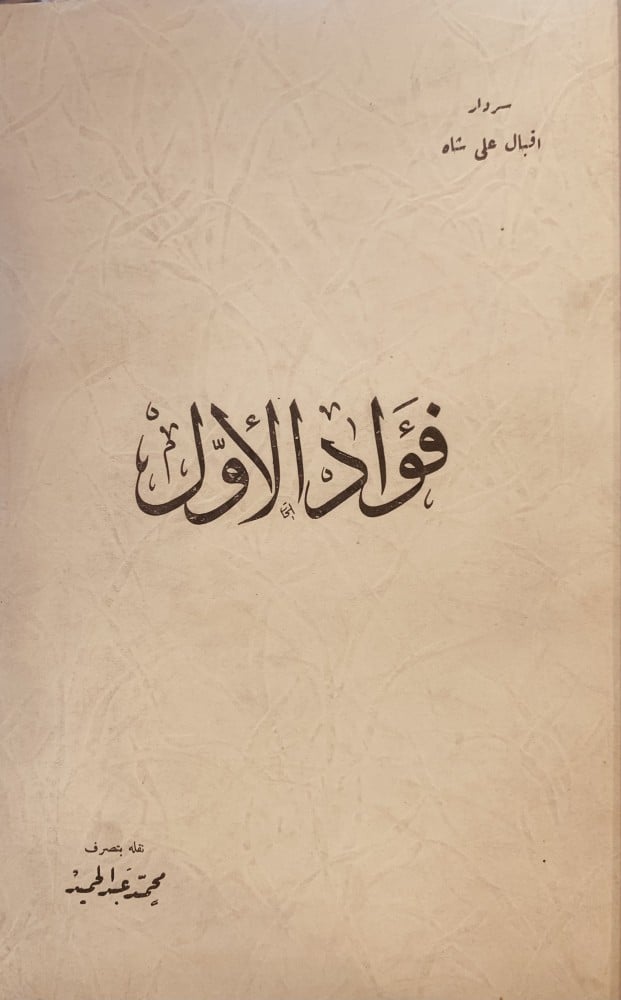 سردار
اقبال على شاه
فُؤَاد الأوّل
نقله بتصرف
محمّد عَبد الحميد